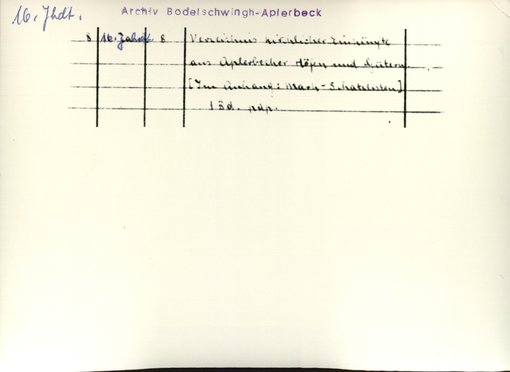 16. Jhdt.
Archiv Bodelschwingh-Aplerbeck
8 16. Jahrh 8 Verzeichnis kirchlicher Einkünfte
aus Aplerbecker Höfen und Gütern.
[Im Anhang: Mark-Schatzlisten]
1 Bd. pap.